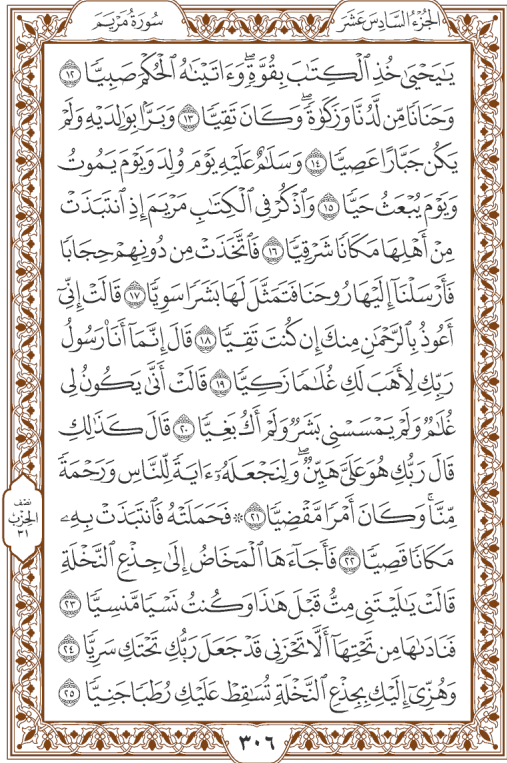 الجُزْءُ السَّادِسَ عَشَرَ
سُورَةُ مَرْيَمَ
يَٰيَحْيَىٰ خُذِ ٱلْكِتَٰبَ بِقُوَّةٍۖ وَءَاتَيْنَٰهُ ٱلْحُكْمَ صَبِيًّا ١٢
وَحَنَانًا مِّن لَّدُنَّا وَزَكَوٰةًۖ وَكَانَ تَقِيًّا ١٣ وَبَرًّۢا بِوَٰلِدَيْهِ وَلَمْ
يَكُن جَبَّارًا عَصِيًّا ١٤ وَسَلَٰمٌ عَلَيْهِ يَوْمَ وُلِدَ وَيَوْمَ يَمُوتُ
وَيَوْمَ يُبْعَثُ حَيًّا ١٥ وَٱذْكُرْ فِى ٱلْكِتَٰبِ مَرْيَمَ إِذِ ٱنتَبَذَتْ
مِنْ أَهْلِهَا مَكَانًا شَرْقِيًّا ١٦ فَٱتَّخَذَتْ مِن دُونِهِمْ حِجَابًا
فَأَرْسَلْنَآ إِلَيْهَا رُوحَنَا فَتَمَثَّلَ لَهَا بَشَرًا سَوِيًّا ١٧ قَالَتْ إِنِّىٓ
أَعُوذُ بِٱلرَّحْمَٰنِ مِنكَ إِن كُنتَ تَقِيًّا ١٨ قَالَ إِنَّمَآ أَنَا۠ رَسُولُ
رَبِّكِ لِأَهَبَ لَكِ غُلَٰمًا زَكِيًّا ١٩ قَالَتْ أَنَّىٰ يَكُونُ لِى
غُلَٰمٌ وَلَمْ يَمْسَسْنِى بَشَرٌ وَلَمْ أَكُ بَغِيًّا ٢٠ قَالَ كَذَٰلِكِ
قَالَ رَبُّكِ هُوَ عَلَىَّ هَيِّنٌۖ وَلِنَجْعَلَهُۥٓ ءَايَةً لِّلنَّاسِ وَرَحْمَةً
مِّنَّاۚ وَكَانَ أَمْرًا مَّقْضِيًّا ٢١ ۞ فَحَمَلَتْهُ فَٱنتَبَذَتْ بِهِۦ
مَكَانًا قَصِيًّا ٢٢ فَأَجَآءَهَا ٱلْمَخَاضُ إِلَىٰ جِذْعِ ٱلنَّخْلَةِ
قَالَتْ يَٰلَيْتَنِى مِتُّ قَبْلَ هَٰذَا وَكُنتُ نَسْيًا مَّنسِيًّا ٢٣
فَنَادَىٰهَا مِن تَحْتِهَآ أَلَّا تَحْزَنِى قَدْ جَعَلَ رَبُّكِ تَحْتَكِ سَرِيًّا ٢٤
وَهُزِّىٓ إِلَيْكِ بِجِذْعِ ٱلنَّخْلَةِ تُسَٰقِطْ عَلَيْكِ رُطَبًا جَنِيًّا ٢٥
نِصْف
الحِزْبُ
٣١
٣٠٦